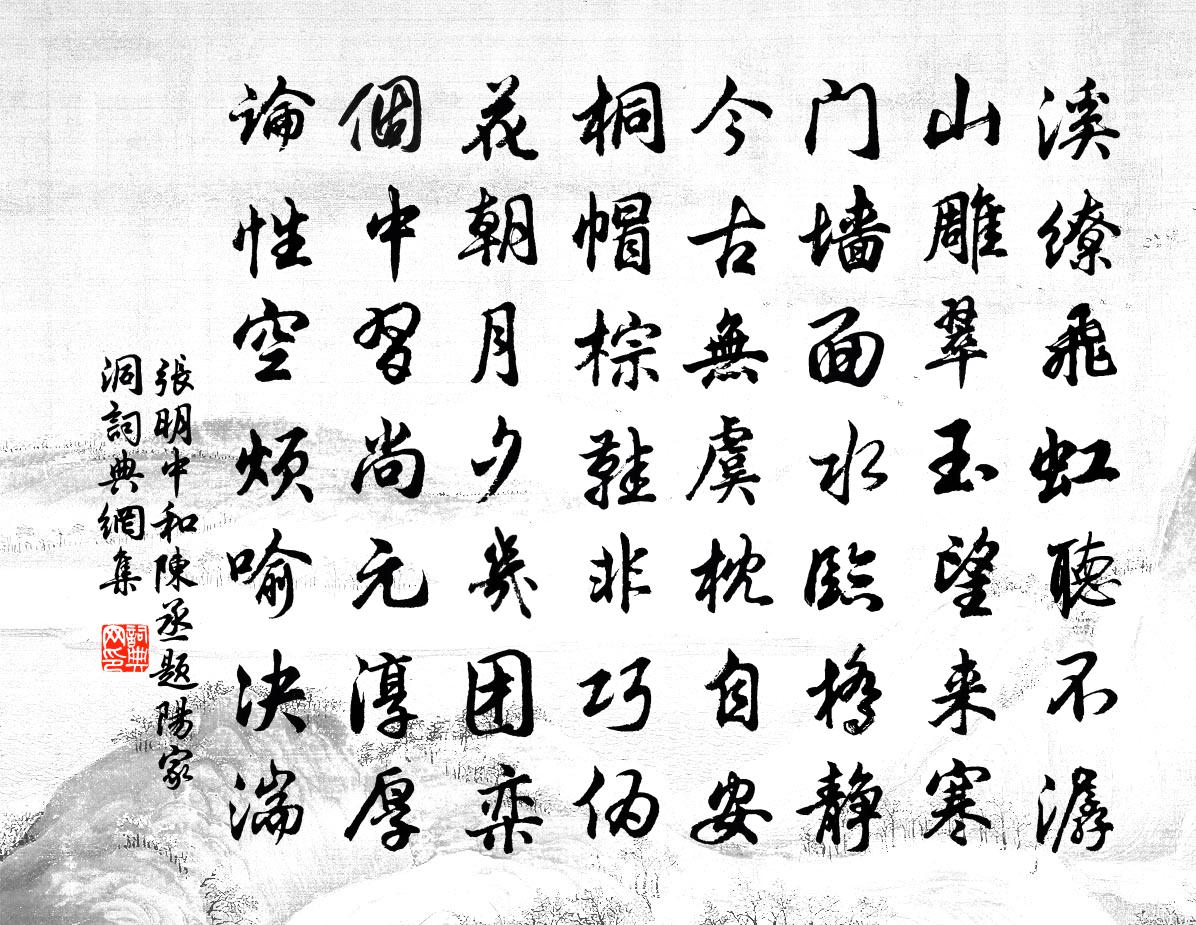 溪缭飛虹聽不潺
山雕翠玉望来寒
门墙面水臨橋静
今古無虞枕自安
桐帽棕鞋非巧伪
花朝月夕幾团栾
個中習尚元淳厚
論性空烦喻决湍
張明中和陳丞題陽家
洞詞典網集
詞典